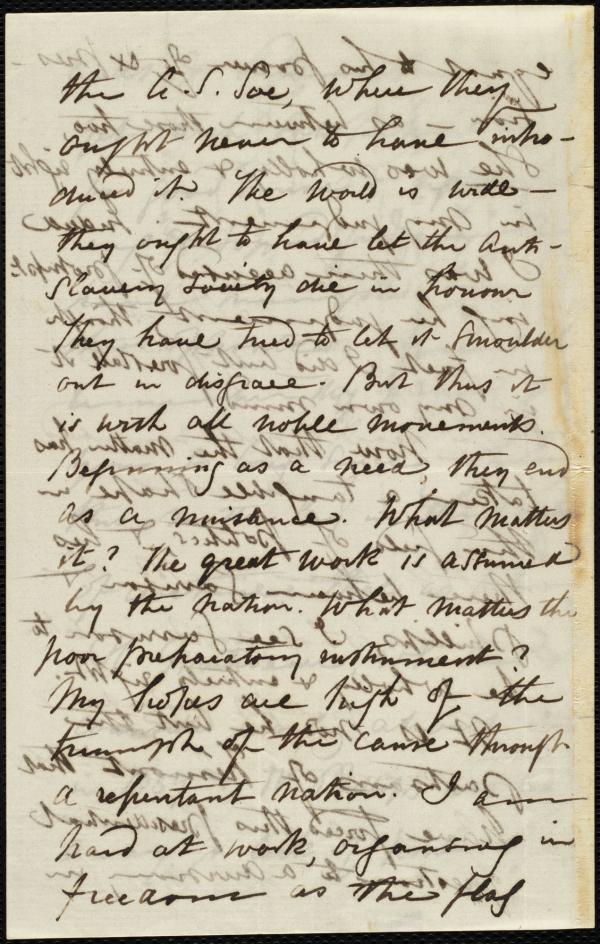 the A. S. Soc, where they
ought never to have intro-
duced it. The world is wide -
they ought to have let the Anti-
Slavery Society die in honour
They have tried to let it smoulder
out in disgrace. But thus it
is with all noble movements.
Beginning as a need, they end
as a nuisance. What matters
it? The great work is assumed
by the nation. What matters the
poor preparatory instrument?
My hopes are high of the
triumph of the cause through
a repentant nation. I am
hard at work, organising in
freedom as the flag